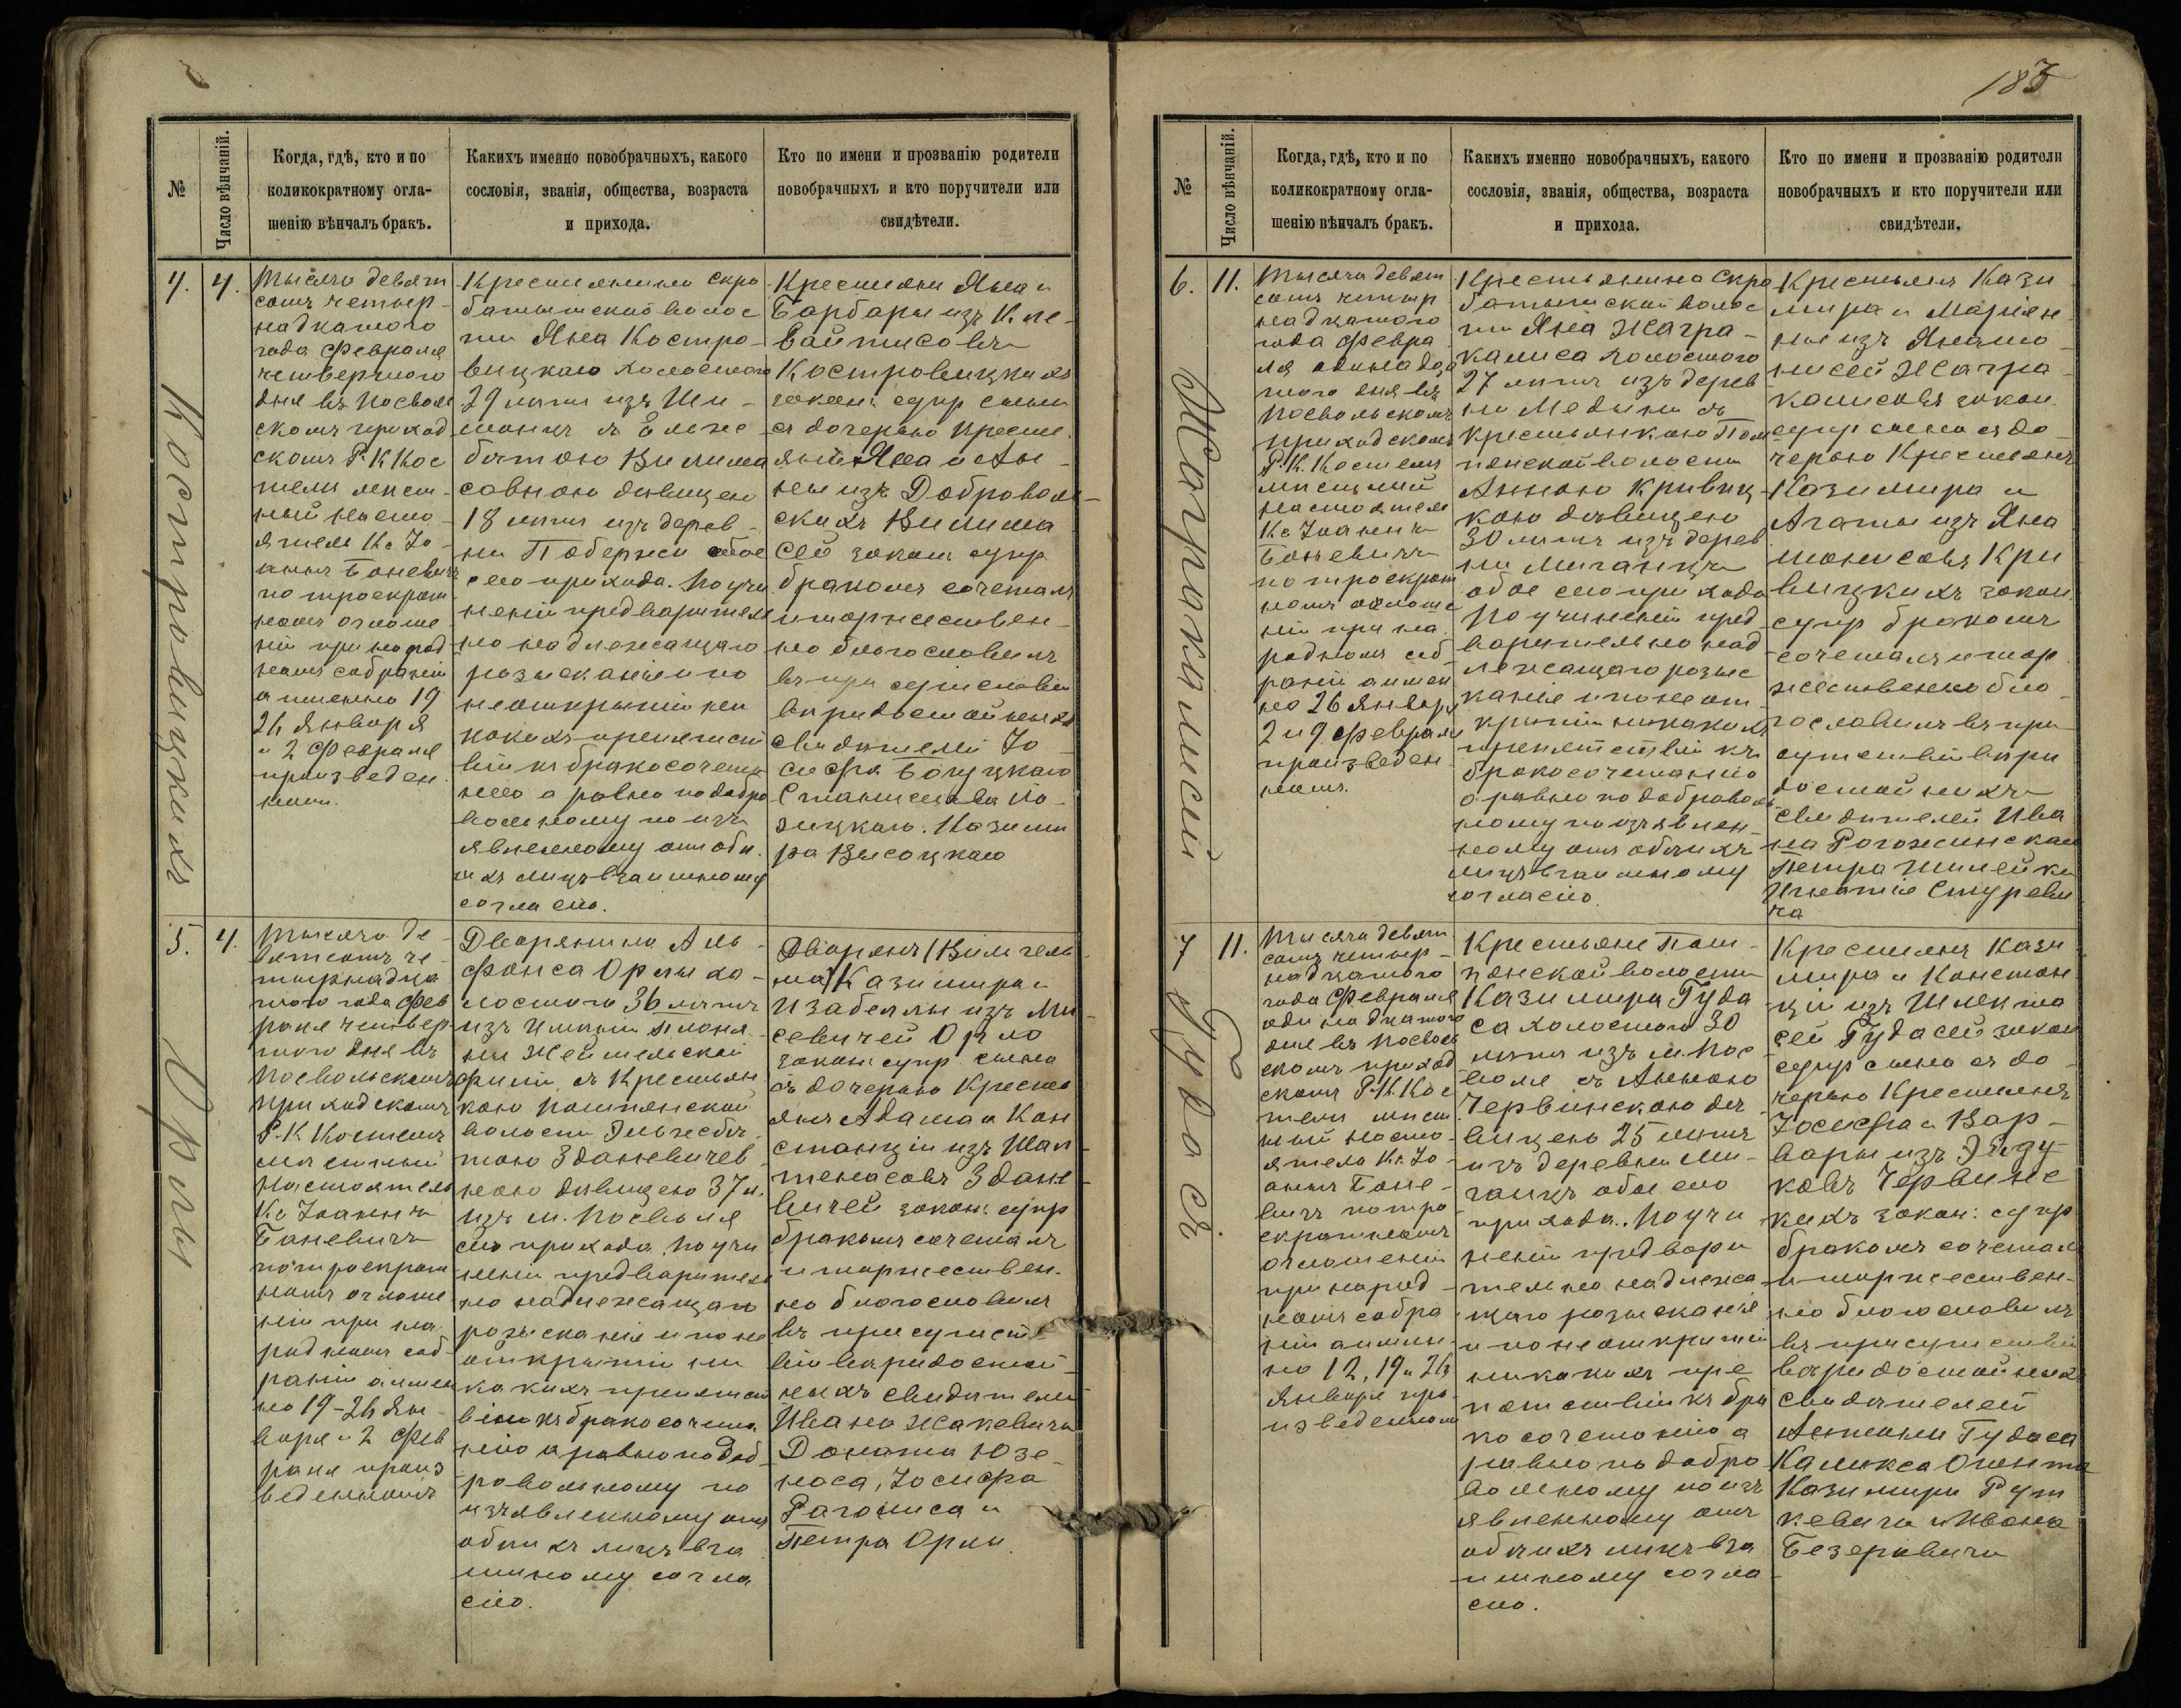 183
№
Число вѣнчаній.
Когда, гдѣ, кто и по
коликократному огла-
шенію вѣнчалъ бракъ.
Какихъ именно новобрачныхъ, какого
сословія, званія, общества, возраста
и прихода.
Кто по имени и прозванію родители
новобрачныхъ и кто поручители или
свидѣтели.
4.
4.
Костровицкихъ
Тысяча девят
сотъ четыр-
надцатого
года Февраля
четвертого
дня въ Посволь
скомъ приход
скомъ Р. К. Кос
телѣ мѣст-
ный насто-
ятель Кс. Іо-
аннъ Боневичъ
по троекрат
номъ оглаше
ніи при народ
номъ собраніи
а именно 19
26 Января
и 2 Февраля
произведен
номъ.
Крестьянина Скро
батышской волос
ти Яна Костро-
вицкаго холостого
29 лѣтъ изъ
съ Эльже
бѣтою Вилима
совною дѣвицею
18 лѣтъ изъ дерев-
ни Побержи обое
сего прихода. По учи
неніи предварител
но надлежащаго
розысканія и по
неоткрытіи ни
какихъ препятст
вій къ бракосочета
нію а равно по добро
вольному по изъ
явленному отъ обо
ихъ лицъ взаимному
согласію.
Крестьянъ Яна и
Барбары изъ
Войтисовъ
Костровицкихъ
закон: супр сына
съ дочерью кресть
янъ Яна и Ан-
ны изъ Доброволь-
скихъ Вилима
сей закон: супр
бракомъ сочеталъ
и торжествен-
но благословилъ
въ присутствіи
вѣридостойныхъ
свидѣтелей Іо-
сифа Богуцкаго
Станислава По-
зицкаго. Казими
ра Высоцкаго
5.
4.
Орлы
Тысяча де-
вятсотъ че-
тырнадца
того года Фев
раля четвер
того дня въ
Посвольскомъ
приходскомъ
Р. К. Костелѣ
мѣстный
настоятель
Кс. Іоаннъ
Боневичъ
по троекрат
номъ оглаше
ніи при на
родномъ соб
раніи а имен
но 19-26 Ян-
варя и 2 Фев
раля произ
веденномъ
Дворянина Аль-
фонса Орлы хо-
лостого 36 лѣтъ
изъ имѣнія Плоня-
ны Жеймельской
филіи, съ крестьян
кою Помпянской
волости Эльжебѣ
тою Зданевичев-
ною дѣвицею 37 л.
изъ м. Посволя
сего прихода. По учи
неніи предварител
но надлежащаго
розысканія и по не
открытіи ни
какихъ препятст
вій къ бракосочета
нію а равно по доб
ровольному по
изъявленному отъ
обоихъ лицъ вза
имному согла
сію.
Дворянъ (Вильгель
ма) Казимира и
Изабеллы изъ Ми-
севичей Орло
закон: супр сына
съ дочерью кресть
янъ Адама и Кон
станціи изъ Шал
тенасовъ Здане-
вичей закон: супр
бракомъ сочеталъ
и торжествен-
но благословилъ
въ присутст
віи вѣридостой-
ныхъ свидѣтелей
Ивана Жакевича
Доната Юзе-
наса, Іосифа
Рагониса и
Петра Орлы.
№
Число вѣнчаній.
Когда, гдѣ, кто и по
коликократному огла-
шенію вѣнчалъ бракъ.
Какихъ именно новобрачныхъ, какого
сословія, званія, общества, возраста
и прихода.
Кто по имени и прозванію родители
новобрачныхъ и кто поручители или
свидѣтели.
6.
11.
Жаграколисей
Тысяча девят
сотъ четыр
надцатого
года Февра
ля одинадца
того дня въ
Посвольскомъ
приходскомъ
Р. К. Костелѣ
мѣстный
настоятель
Кс Іоаннъ
Боневичъ
по троекрат
номъ оглаше
ніи при на
родномъ соб
раніи а имен
но 26 Января
2 и 9 Февраля
произведен
номъ.
Крестьянина Скро
батышской волос
ти Яна Жагра-
калиса холостого
27 лѣтъ изъ дерев
ни Медыни съ
крестьянкою Пом
пянской волости
Анною Кривиц-
кою дѣвицею
30 лѣтъ изъ дерев
ни Миганцы
обое сего прихода
По учиненіи пред
варительно над
лежащаго розыс
канія и по неот
крытіи никакихъ
препятствій къ
бракосочетанію
а равно по доброволь
ному по изъявлен-
ному отъ обоихъ
лицъ взаимному
согласію.
Крестьянъ Кази
мира и Маріян
ны изъ
Жагра-
калисовъ закон.
супр сына съ до-
черью крестьянъ
Казимира и
Агаты изъ Яна
шонисовъ Кри
вицкихъ закон.
супр бракомъ
сочеталъ и тор
жественно бла
гословилъ въ при
сутствіи вѣри
достойныхъ
свидѣтелей Ива
на Рогожинскаго
Петра Шилейки
Игнатія Стурeви
ча
7
11.
Гудасъ
Тысяча девят
сотъ четыр-
надцатого
года Февраля
одинадцатого
дня въ Посволь
скомъ приход
скомъ Р. К. Кос
телѣ мѣст
ный насто-
ятель Кс. Іо-
аннъ Боне-
вичъ по тро
екратномъ
оглашеніи
при народ-
номъ собра
ніи а имен-
но 12, 19 и 26
Января про
изведенномъ
Крестьяне Пом-
пянской волости
Казимира Гуда
са холостого 30
лѣтъ изъ м. Пос
воля съ Анною
Червинскою дѣ
вицею 25 лѣтъ
изъ деревни Ми-
ганцъ обое сего
прихода. По учи
неніи предвари
тельно надлежа
щаго розысканія
и по неоткрытіи
никакихъ пре
пятствій къ бра
косочетанію а
равно по добро
вольному по изъ
явленному отъ
обоихъ лицъ вза
имному согла
сію.
Крестьянъ Кази
мира и Констан
ціи изъ Шлекта
сей Гудасей закон
супр сына съ до-
черью крестьянъ
Іосифа и Вар-
вары изъ
Червинс
кихъ закон: супр
бракомъ сочеталъ
и торжествен-
но благословилъ
въ присутствіи
вѣридостойныхъ
свидѣтелей
Антона Гудаса
Казимира Рут
кевича и Ивана
Безеровича